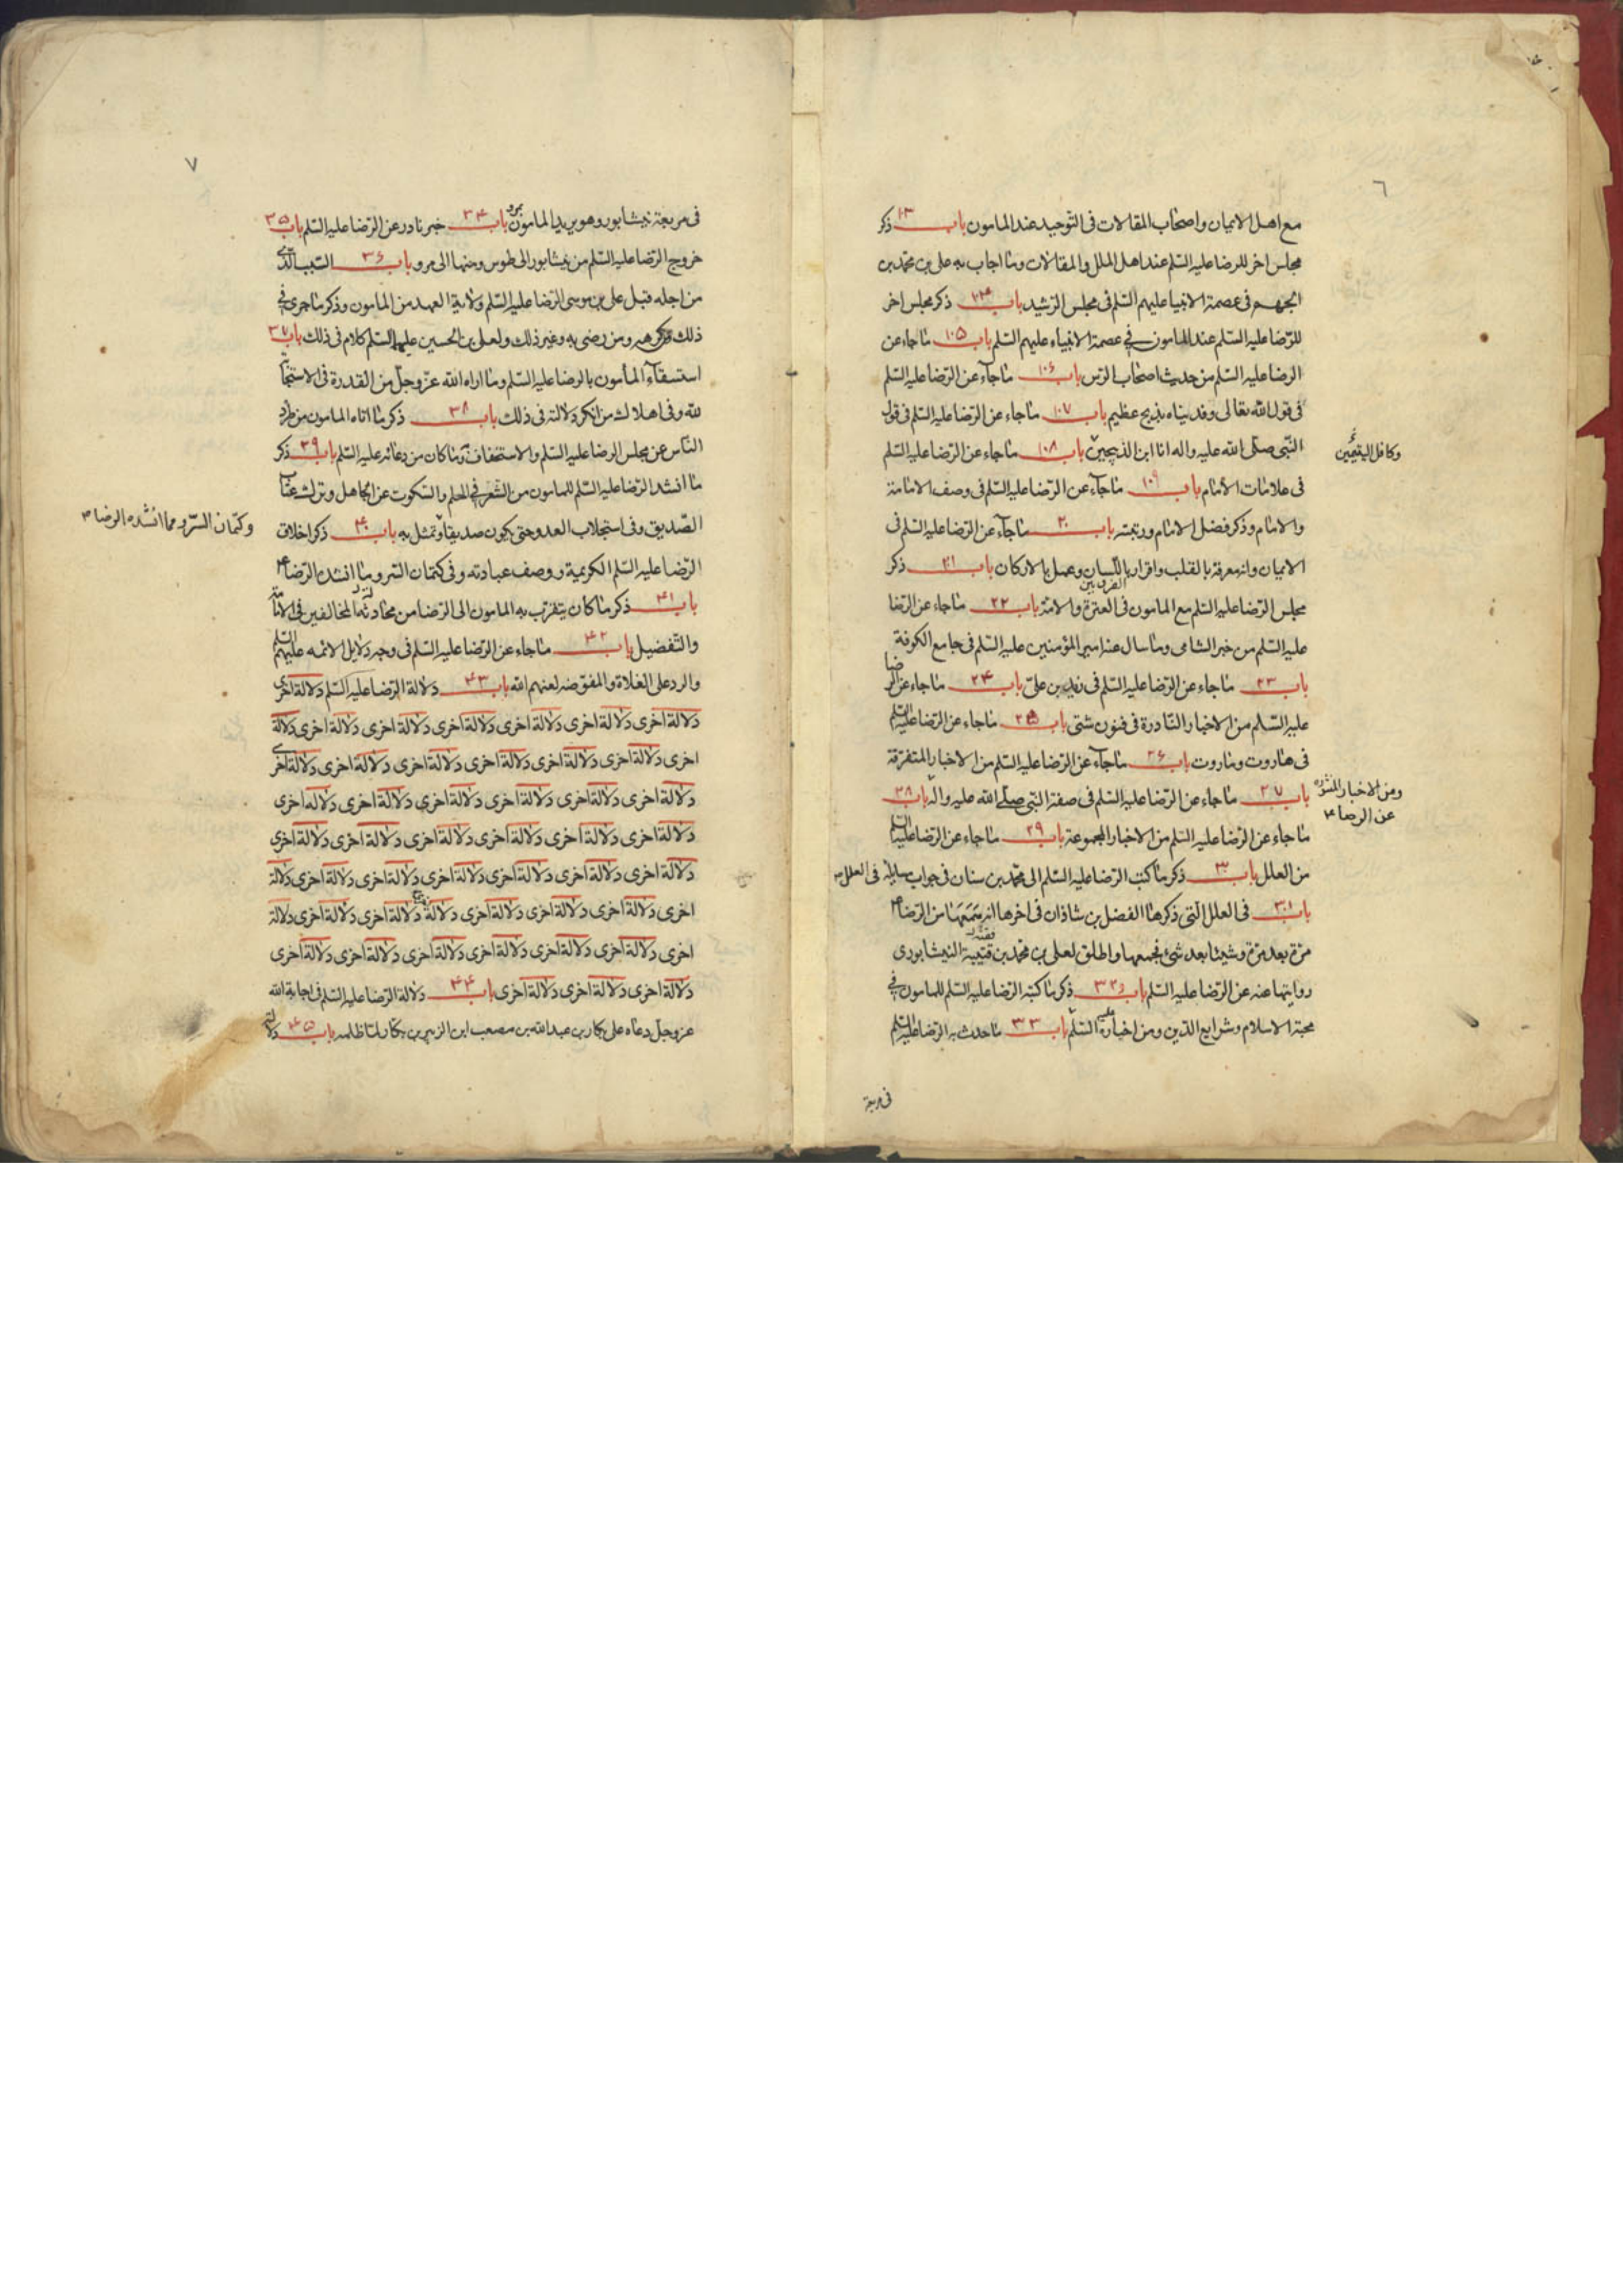 ٦
مع اهل الاديان واصحاب المقالات فی التوحيد عند المامون باب ۱۳ ذكر
مجلس اخر للرضا عليه السلم عند اهل الملل والمقالات وما اجاب به علی بن محمد بن
الجهم فی عصمة الانبيا عليهم السلم فی مجلس الرشيد باب ذكر مجلس اخر
للرضا عليه السلم عند المامون فی عصمة الانبياء عليهم السلم باب ۱۰۵ ما جاء عن
الرضا عليه السلم من حديث اصحاب الرس باب ۱۰۶ ما جاء عن الرضا عليه السلم
فی قول الله تعالی وفديناه بذبح عظيم باب ۱۰۷ ما جاء عن الرضا عليه السلم فی قول
النبی صلی الله عليه واله انا ابن الذبيحين باب ۱۰۸ ما جاء عن الرضا عليه السلم
وكافل اليتيمين
فی علامات الامام باب ۱۰۹ ما جاء عن الرضا عليه السلم فی وصف الامامة
والامام وذكر فضل الامام ورتبته باب ۲۰ ما جاء عن الرضا عليه السلم فی
الايمان وانه معرفة بالقلب واقرار باللسان وعمل بالاركان باب ۲۰۱ ذكر
مجلس الرضا عليه السلم مع المامون فی الفرق بين العترة والامة باب ۲۲ ما جاء عن الرضا
عليه السلم من خبر الشامی وما سال عنه امير المؤمنين عليه السلم فی جامع الكوفة
باب ۲۳ ما جاء عن الرضا عليه السلم فی زيد بن علی باب ۲۴ ما جاء عن الرضا
عليه السلم من الاخبار النادرة فی فنون شتی باب ۲۵ ما جاء عن الرضا عليه السلم
فی هاروت وماروت باب ۲۶ ما جاء عن الرضا عليه السلم من الاخبار المتفرقة
باب ۲۷ ما جاء عن الرضا عليه السلم فی صفة النبی صلی الله عليه واله باب ۲۸
ومن الاخبار
عن الرضا ۴
ما جاء عن الرضا عليه السلم من الاخبار المجموعة باب ۲۹ ما جاء عن الرضا عليه السلم
من العلل باب ۳۰ ذكر ما كتب الرضا عليه السلم الی محمد بن سنان فی جواب مسايله فی العلل
باب ۳۰۱ فی العلل التی ذكرها الفضل بن شاذان فی اخرها انه سمعها من الرضا ۴
مرة بعد مرة وشيئا بعد شئ فجمعها واطلق لعلی بن محمد بن قتيبة النيشابوری
روايتها عنه عن الرضا عليه السلم باب ۳۲ ذكر ما كتبه الرضا عليه السلم للمامون فی
محبة الاسلام وشرايع الدين ومن اخباره عليه السلم باب ۳۳ ما حدث به الرضا عليه السلم
فی مربعة
۷
فی مربعة نيشابور وهو يريد المامون بمرو باب ۳۴ خبر نادر عن الرضا عليه السلم باب ۳۵
خروج الرضا عليه السلم من نيشابور الی طوس ومنها الی مرو باب ۳۶ السبب الذی
من اجله قبل علی بن موسی الرضا عليه السلم ولاية العهد من المامون وذكر ما جری فی
ذلك ومن كرهه ومن رضی به وغير ذلك ولعلی بن الحسين عليهما السلم كلام فی ذلك باب ۳۷
استسقاء المأمون بالرضا عليه السلم وما اراه الله عز وجل من القدرة فی الاستجابة
لله وفی اهلاك من انكر دلالته فی ذلك باب ۳۸ ذكر ما اتاه المامون من طرد
الناس عن مجلس الرضا عليه السلم والاستخفاف به وما كان من دعائه عليه السلم باب ۳۹ ذكر
ما انشد الرضا عليه السلم للمامون من الشعر فی الحلم والسكوت عن الجاهل وترك عتاب
الصديق وفی استجلاب العدو حتی يكون صديقا وتمثل به باب ۴۰ ذكر اخلاق
وكتمان السر ومما انشده الرضا ۴
الرضا عليه السلم الكريمة ووصف عبادته وفی كتمان السر وما انشده الرضا ۴
باب ۴۱ ذكر ما كان يتقرب به المامون الی الرضا من مجادلة المخالفين فی الامامة
والتفضيل باب ۴۲ ما جاء عن الرضا عليه السلم فی وجه دلايل الائمه عليهم السلم
والرد علی الغلاة والمفوضه لعنهم الله باب ۴۳ دلالة الرضا عليه السلم دلالة اخری
دلالة اخری دلالة اخری دلالة اخری دلالة اخری دلالة اخری دلالة اخری دلالة
اخری دلالة اخری دلالة اخری دلالة اخری دلالة اخری دلالة اخری دلالة اخری
دلالة اخری دلالة اخری دلالة اخری دلالة اخری دلالة اخری دلالة اخری
دلالة اخری دلالة اخری دلالة اخری دلالة اخری دلالة اخری دلالة اخری
دلالة اخری دلالة اخری دلالة اخری دلالة اخری دلالة اخری دلالة اخری دلالة
اخری دلالة اخری دلالة اخری دلالة اخری دلالة دلالة اخری دلالة اخری دلالة
اخری دلالة اخری دلالة اخری دلالة اخری دلالة اخری دلالة اخری دلالة اخری
دلالة اخری دلالة اخری دلالة اخری باب ۴۴ دلالة الرضا عليه السلم فی اجابة الله
عز وجل دعاه علی بكار بن عبدالله بن مصعب ابن الزبير بن بكار لما ظلمه باب ۴۵ دلالته